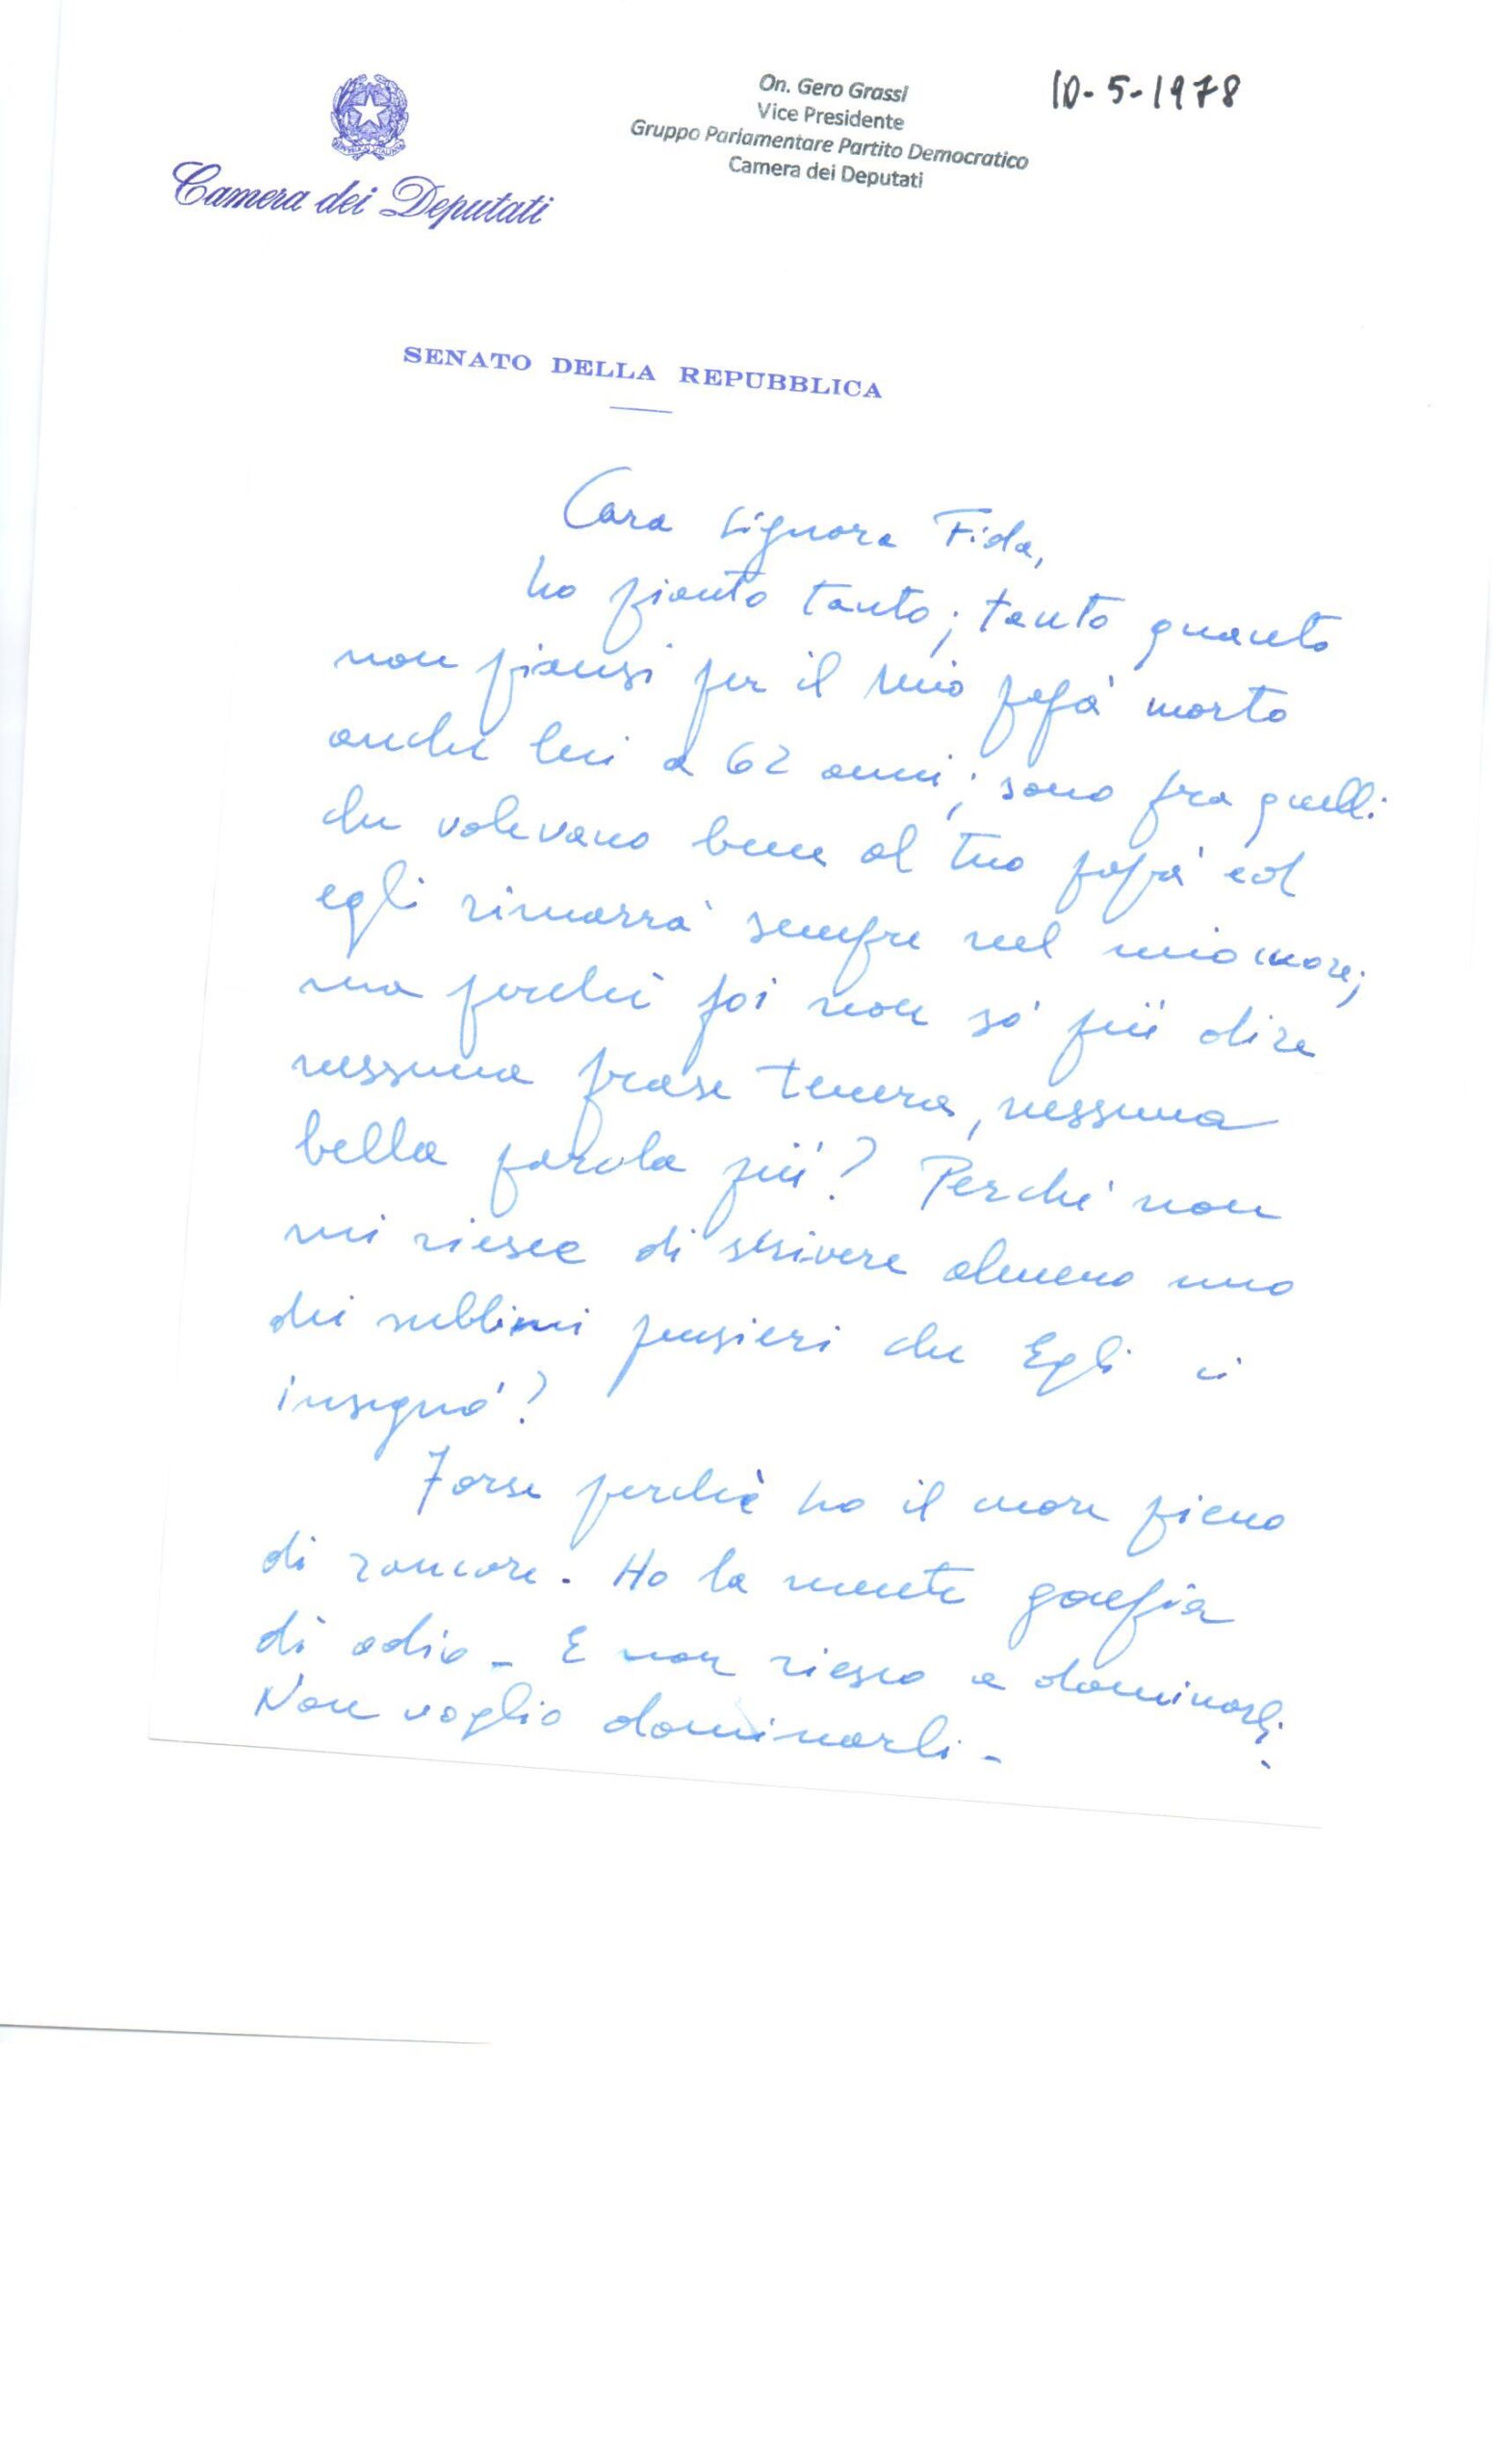 Camera dei Deputati
On. Gero Grassi
Vice Presidente
Gruppo Parlamentare Partito Democratico
Camera dei Deputati
10-5-1978
SENATO DELLA REPUBBLICA
Cara Signora Fida,
ho pianto tanto; tanto quanto
non piansi per il mio papà morto
anche lui a 62 anni; sono fra quelli
che volevano bene al tuo papà ed
egli rimarrà sempre nel mio cuore;
ma perchè poi non so' più dire
nessuna frase tenera, nessuna
bella parola più? Perchè non
mi riesce di scrivere almeno uno
dei sublimi pensieri che Egli ci
insegnò?
Forse perchè ho il cuore pieno
di rancore. Ho la mente gonfia
di odio - E non riesco a dominarli.
Non voglio dominarli -